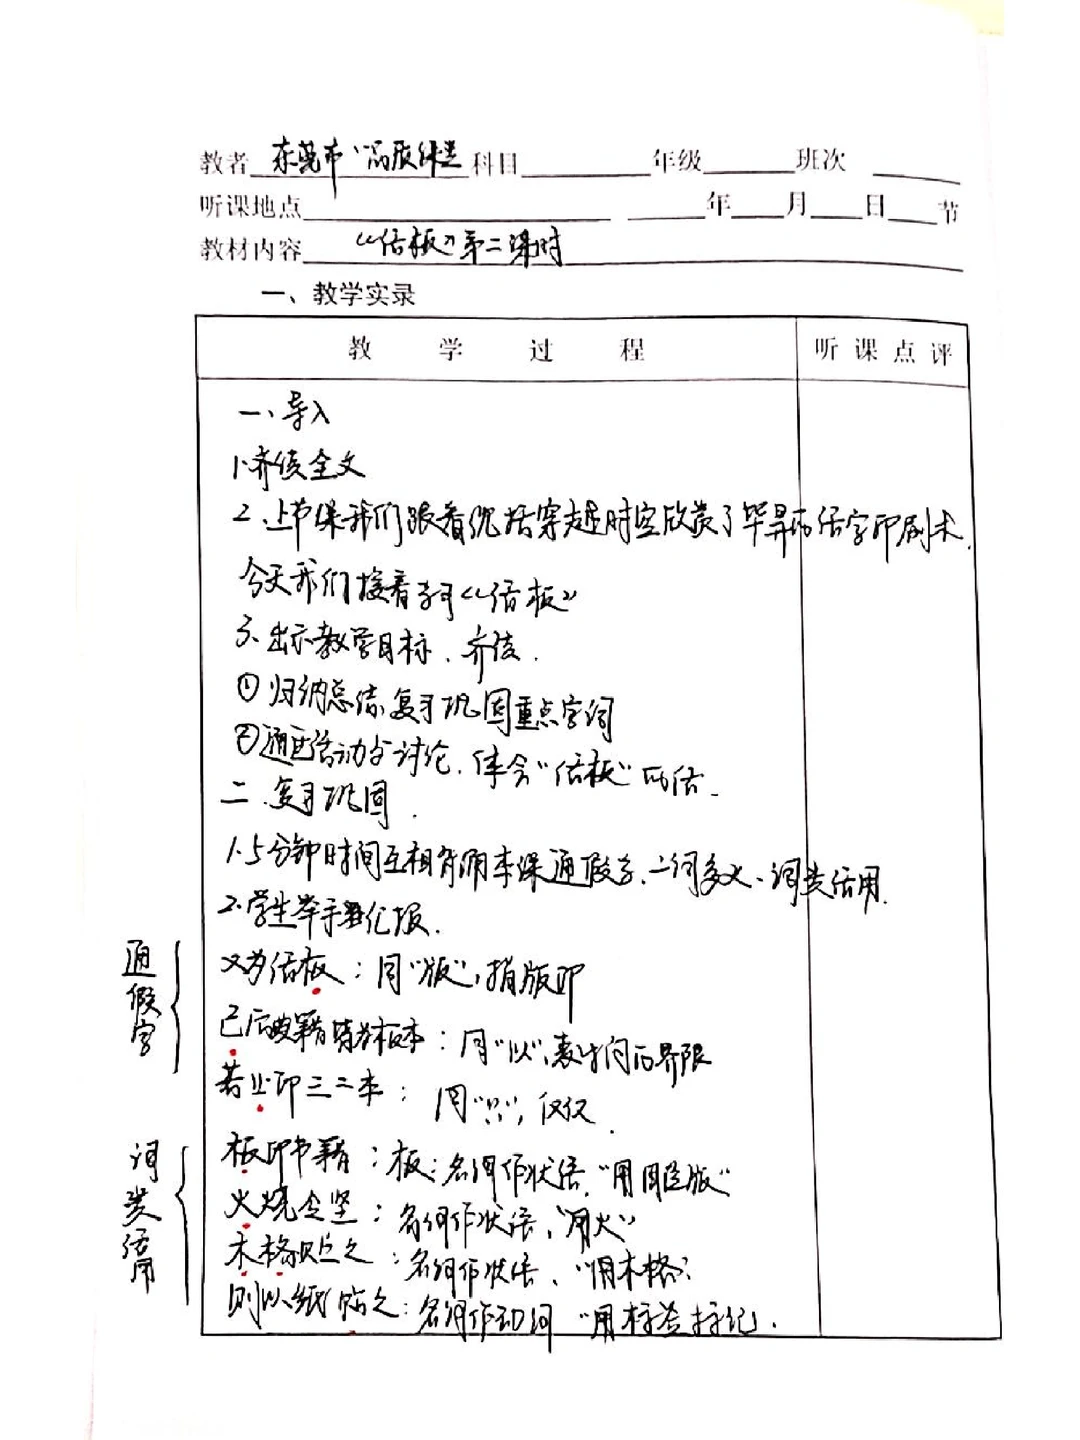 教者 东莞市 科目 年级 班次
听课地点 年 月 日 节
教材内容 《活板》第二课时
一、教学实录
教 学 过 程 听 课 点 评
一、导入
1.齐读全文
2.上节课我们跟着沈括穿越时空欣赏了毕昇的活字印刷术.
今天我们接着学习《活板》
3.出示教学目标.齐读.
①归纳总结,复习巩固重点字词
②通过活动与讨论.体会"活板"的活.
二.复习巩固.
1.5分钟时间互相背诵本课通假字、一词多义、词类活用.
2.学生举手汇报.
通假字
又为活板:同"版",指版印
已后典籍皆为板本:同"以",表时间的界限
若止印三二本:同"只",仅仅.
词类活用
板印书籍:板:名词作状语."用雕版"
火烧令坚:名词作状语,"用火"
木格贮之:名词作状语、"用木格"
则以纸帖之:名词作动词 "用标签标记.